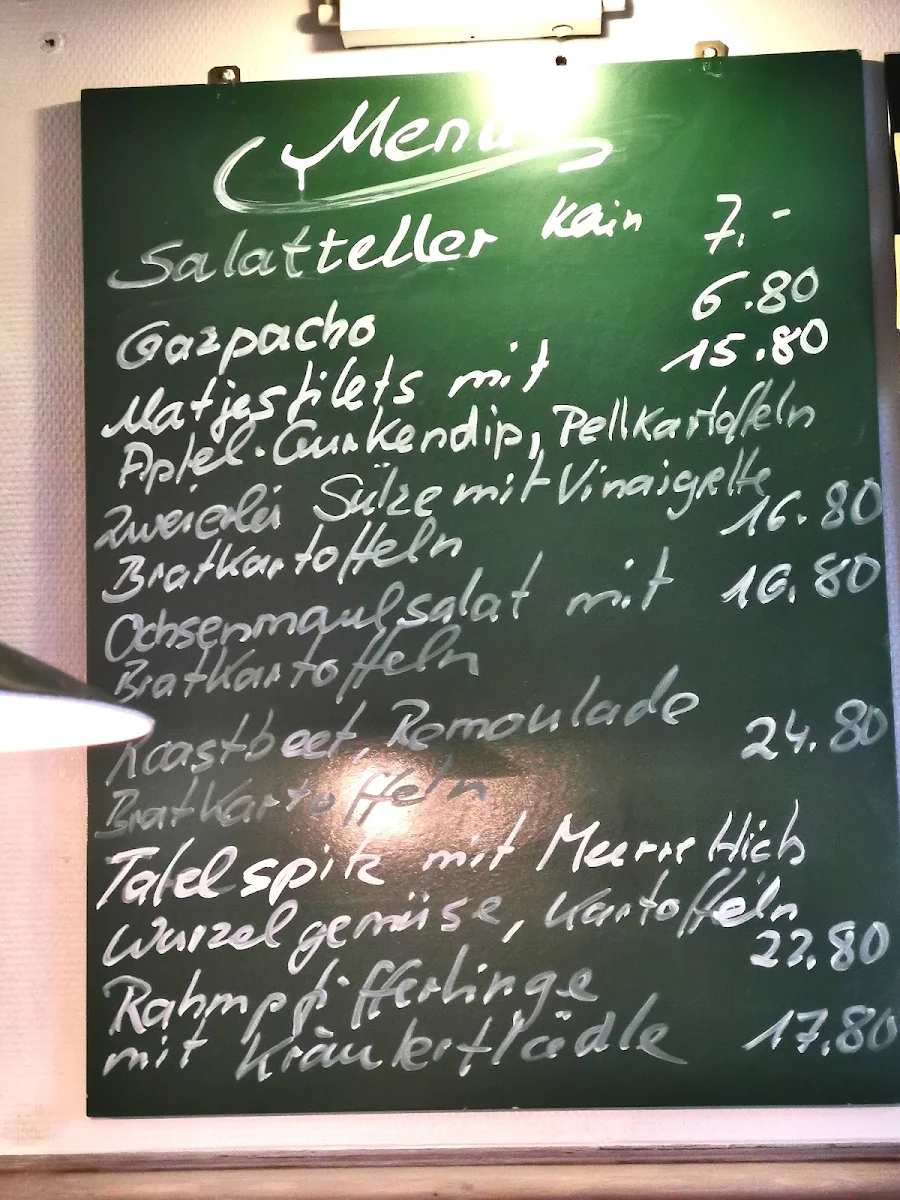 Menu
Salatteller Kain 7.-
Gazpacho 6.80
Matjesfilets mit 15.80
Apfel-Gurkendip, Pellkartoffeln
Zweierlei Sülze mit Vinaigrette
Bratkartoffeln 16.80
Ochsenmaulsalat mit 16.80
Bratkartoffeln
Roastbeef, Remoulade
Bratkartoffeln 24.80
Tafelspitz mit Meerrettich
Wurzelgemüse, Kartoffeln
22.80
Rahmpfifferlinge
mit Kräuterflädle 17.80